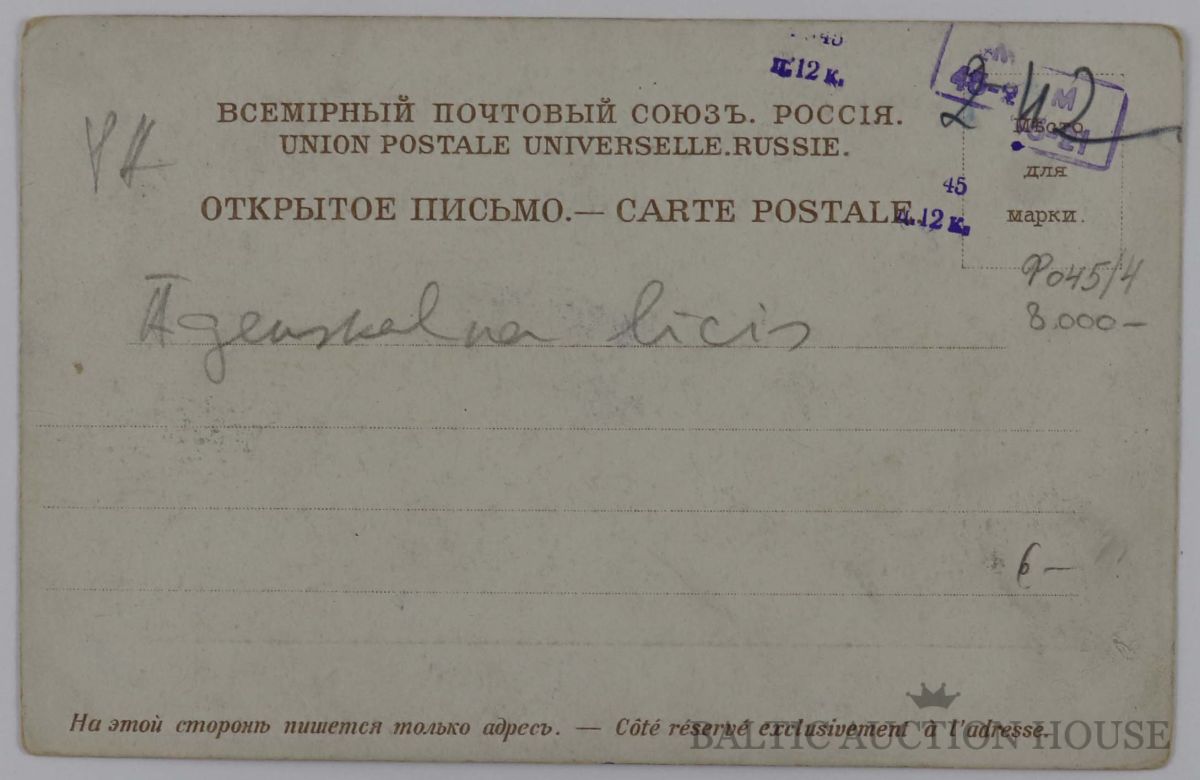 45
ц.12 к.
2-42
ВСЕМІРНЫЙ ПОЧТОВЫЙ СОЮЗЪ. РОССІЯ.
UNION POSTALE UNIVERSELLE.RUSSIE.
ОТКРЫТОЕ ПИСЬМО.— CARTE POSTALE.
Мѣсто
для
марки.
45
ц.12 к.
Āgenskalna līcis
Po45/4
8.000—
6—
На этой сторонѣ пишется только адресъ. — Côté réservé exclusivement à l'adresse.
BALTIC AUCTION HOUSE